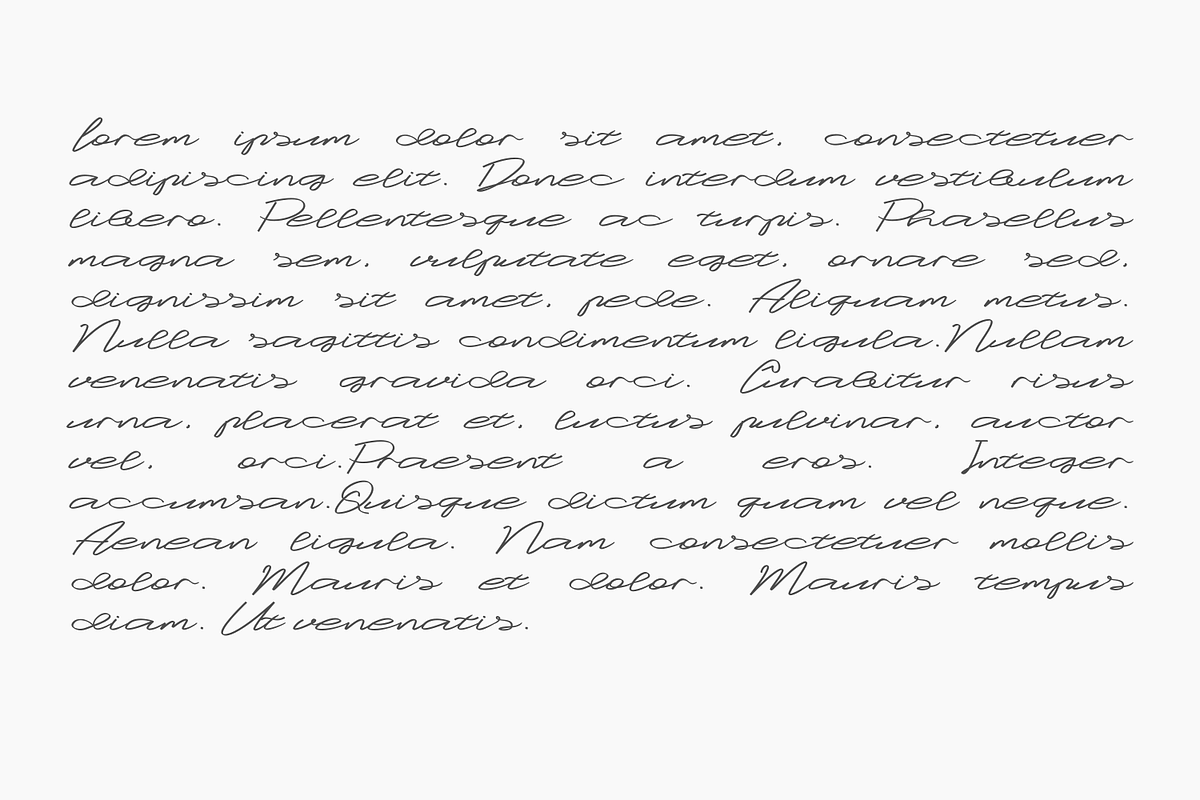 lorem ipsum dolor sit amet, consectetuer
adipiscing elit. Donec interdum vestibulum
libero. Pellentesque ac turpis. Phasellus
magna sem, vulputate eget, ornare sed,
dignissim sit amet, pede. Aliquam metus.
Nulla sagittis condimentum ligula.Nullam
venenatis gravida orci. Curabitur risus
urna, placerat et, luctus pulvinar, auctor
vel, orci.Praesent a eros. Integer
accumsan.Quisque dictum quam vel neque.
Aenean ligula. Nam consectetuer mollis
dolor. Mauris et dolor. Mauris tempus
diam. Ut venenatis.